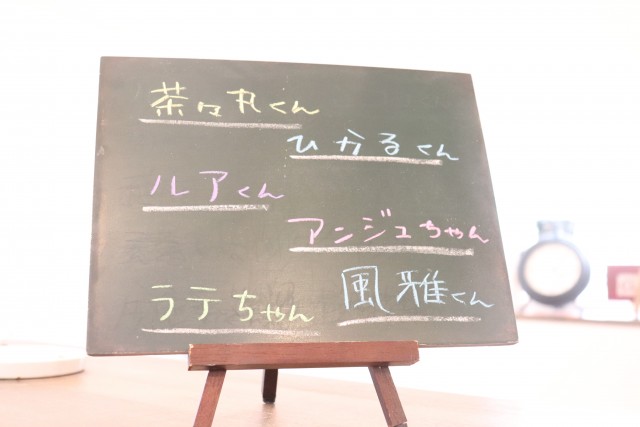 茶々丸くん
ひかるくん
ルアくん
アンジュちゃん
ラテちゃん
風雅くん